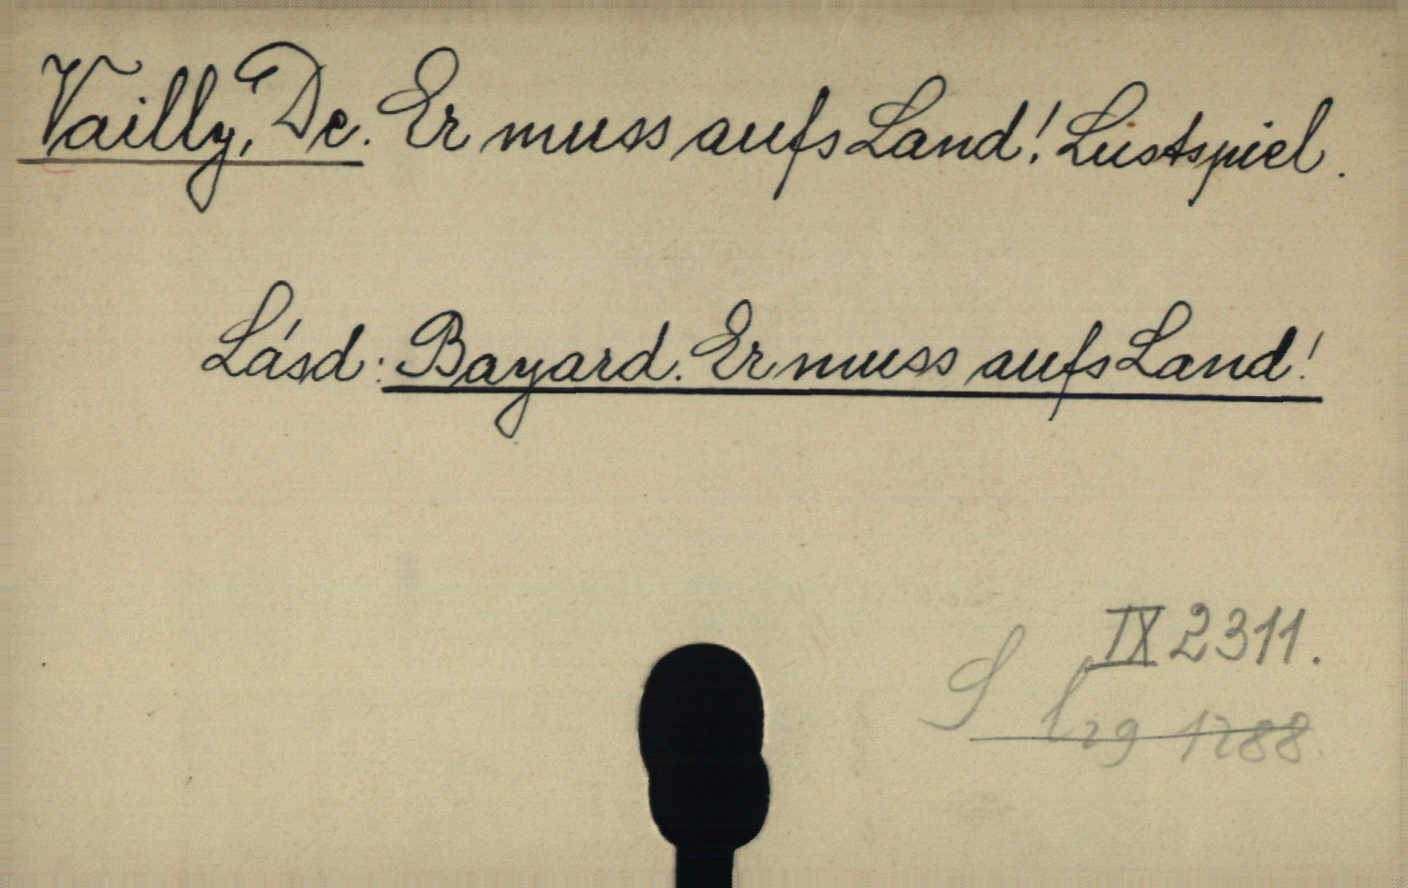 Vailly, De. Er muss aufs Land! Lustspiel.
Lásd: Bayard. Er muss aufs Land!
IX 2311.
S l 29 1288.